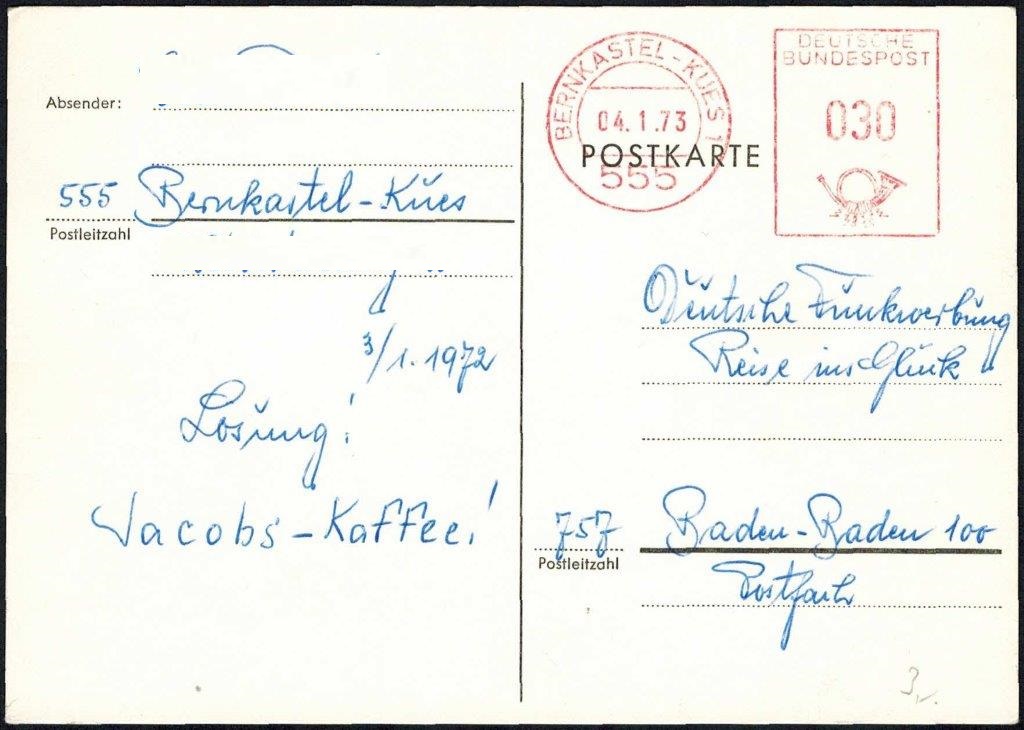 Absender:
555 Bernkastel-Kues
Postleitzahl
3/1.1972
Lösung!
Jacobs-Kaffee!
BERNKASTEL-KUES 1
04.1.73
555
DEUTSCHE
BUNDESPOST
030
POSTKARTE
Deutsche Funkwerbung
Reise ins Glück
757 Baden-Baden 100
Postleitzahl
Postfach
3,-